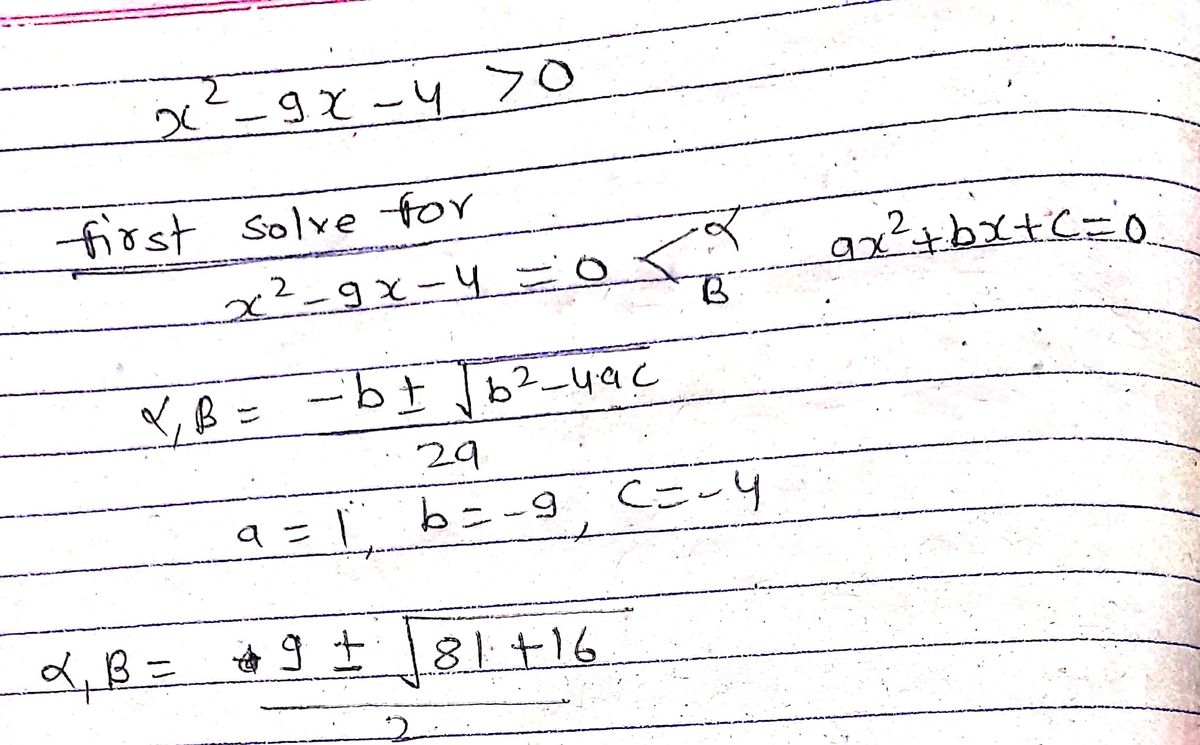 x² - 9x - 4 > 0
first solve for
x² - 9x - 4 = 0 < α β ax² + bx + c = 0
α, β = -b ± √b² - 4ac / 2a
a = 1, b = -9, c = -4
α, β = 9 ± √81 + 16 / 2